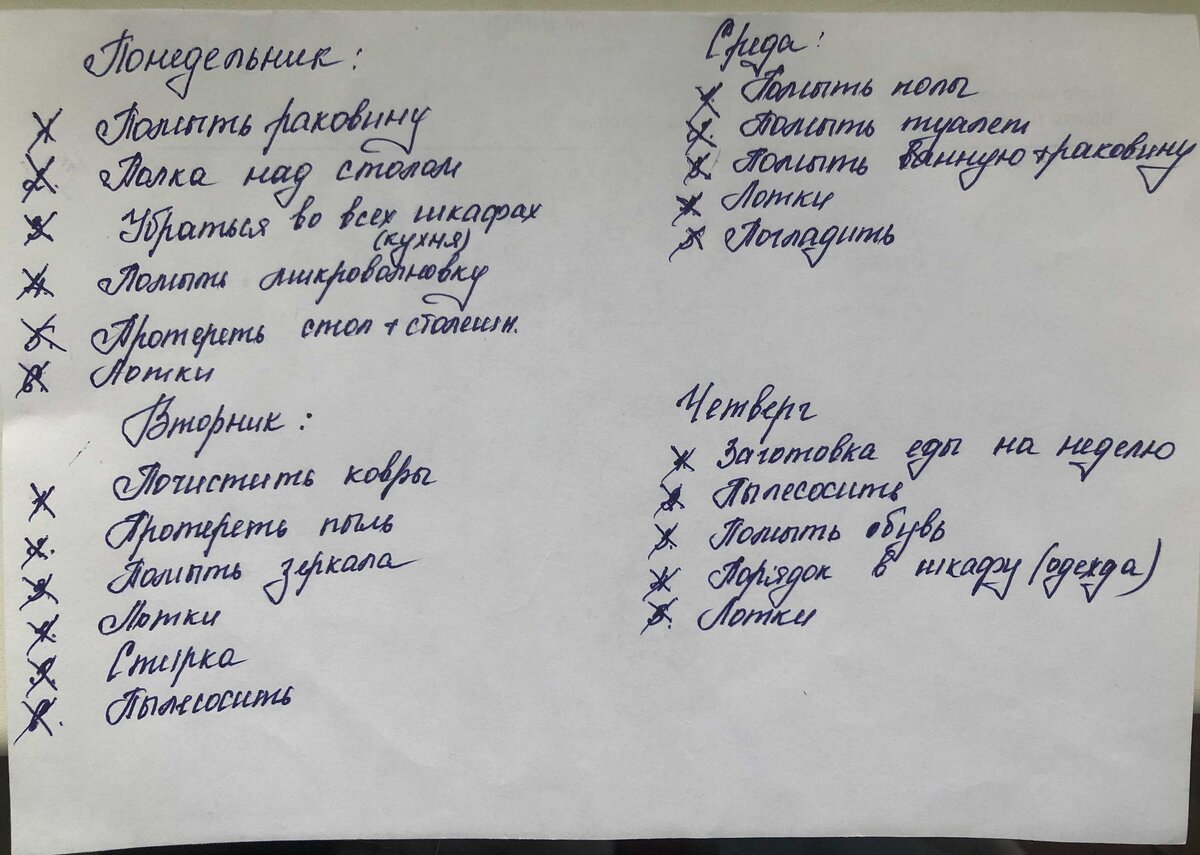 Понедельник:
1. Помыть раковину
2. Полка над столом
3. Убраться во всех шкафах
(кухня)
4. Помыть микроволновку
5. Протереть стол + столешн.
6. Лотки
Вторник:
1. Почистить ковры
2. Протереть пыль
3. Помыть зеркала
4. Лотки
5. Стирка
6. Пылесосить
Среда:
1. Помыть полы
2. Помыть туалет
3. Помыть ванную + раковину
4. Лотки
5. Погладить
Четверг
1. Заготовка еды на неделю
2. Пылесосить
3. Помыть обувь
4. Порядок в шкафу (одежда)
5. Лотки